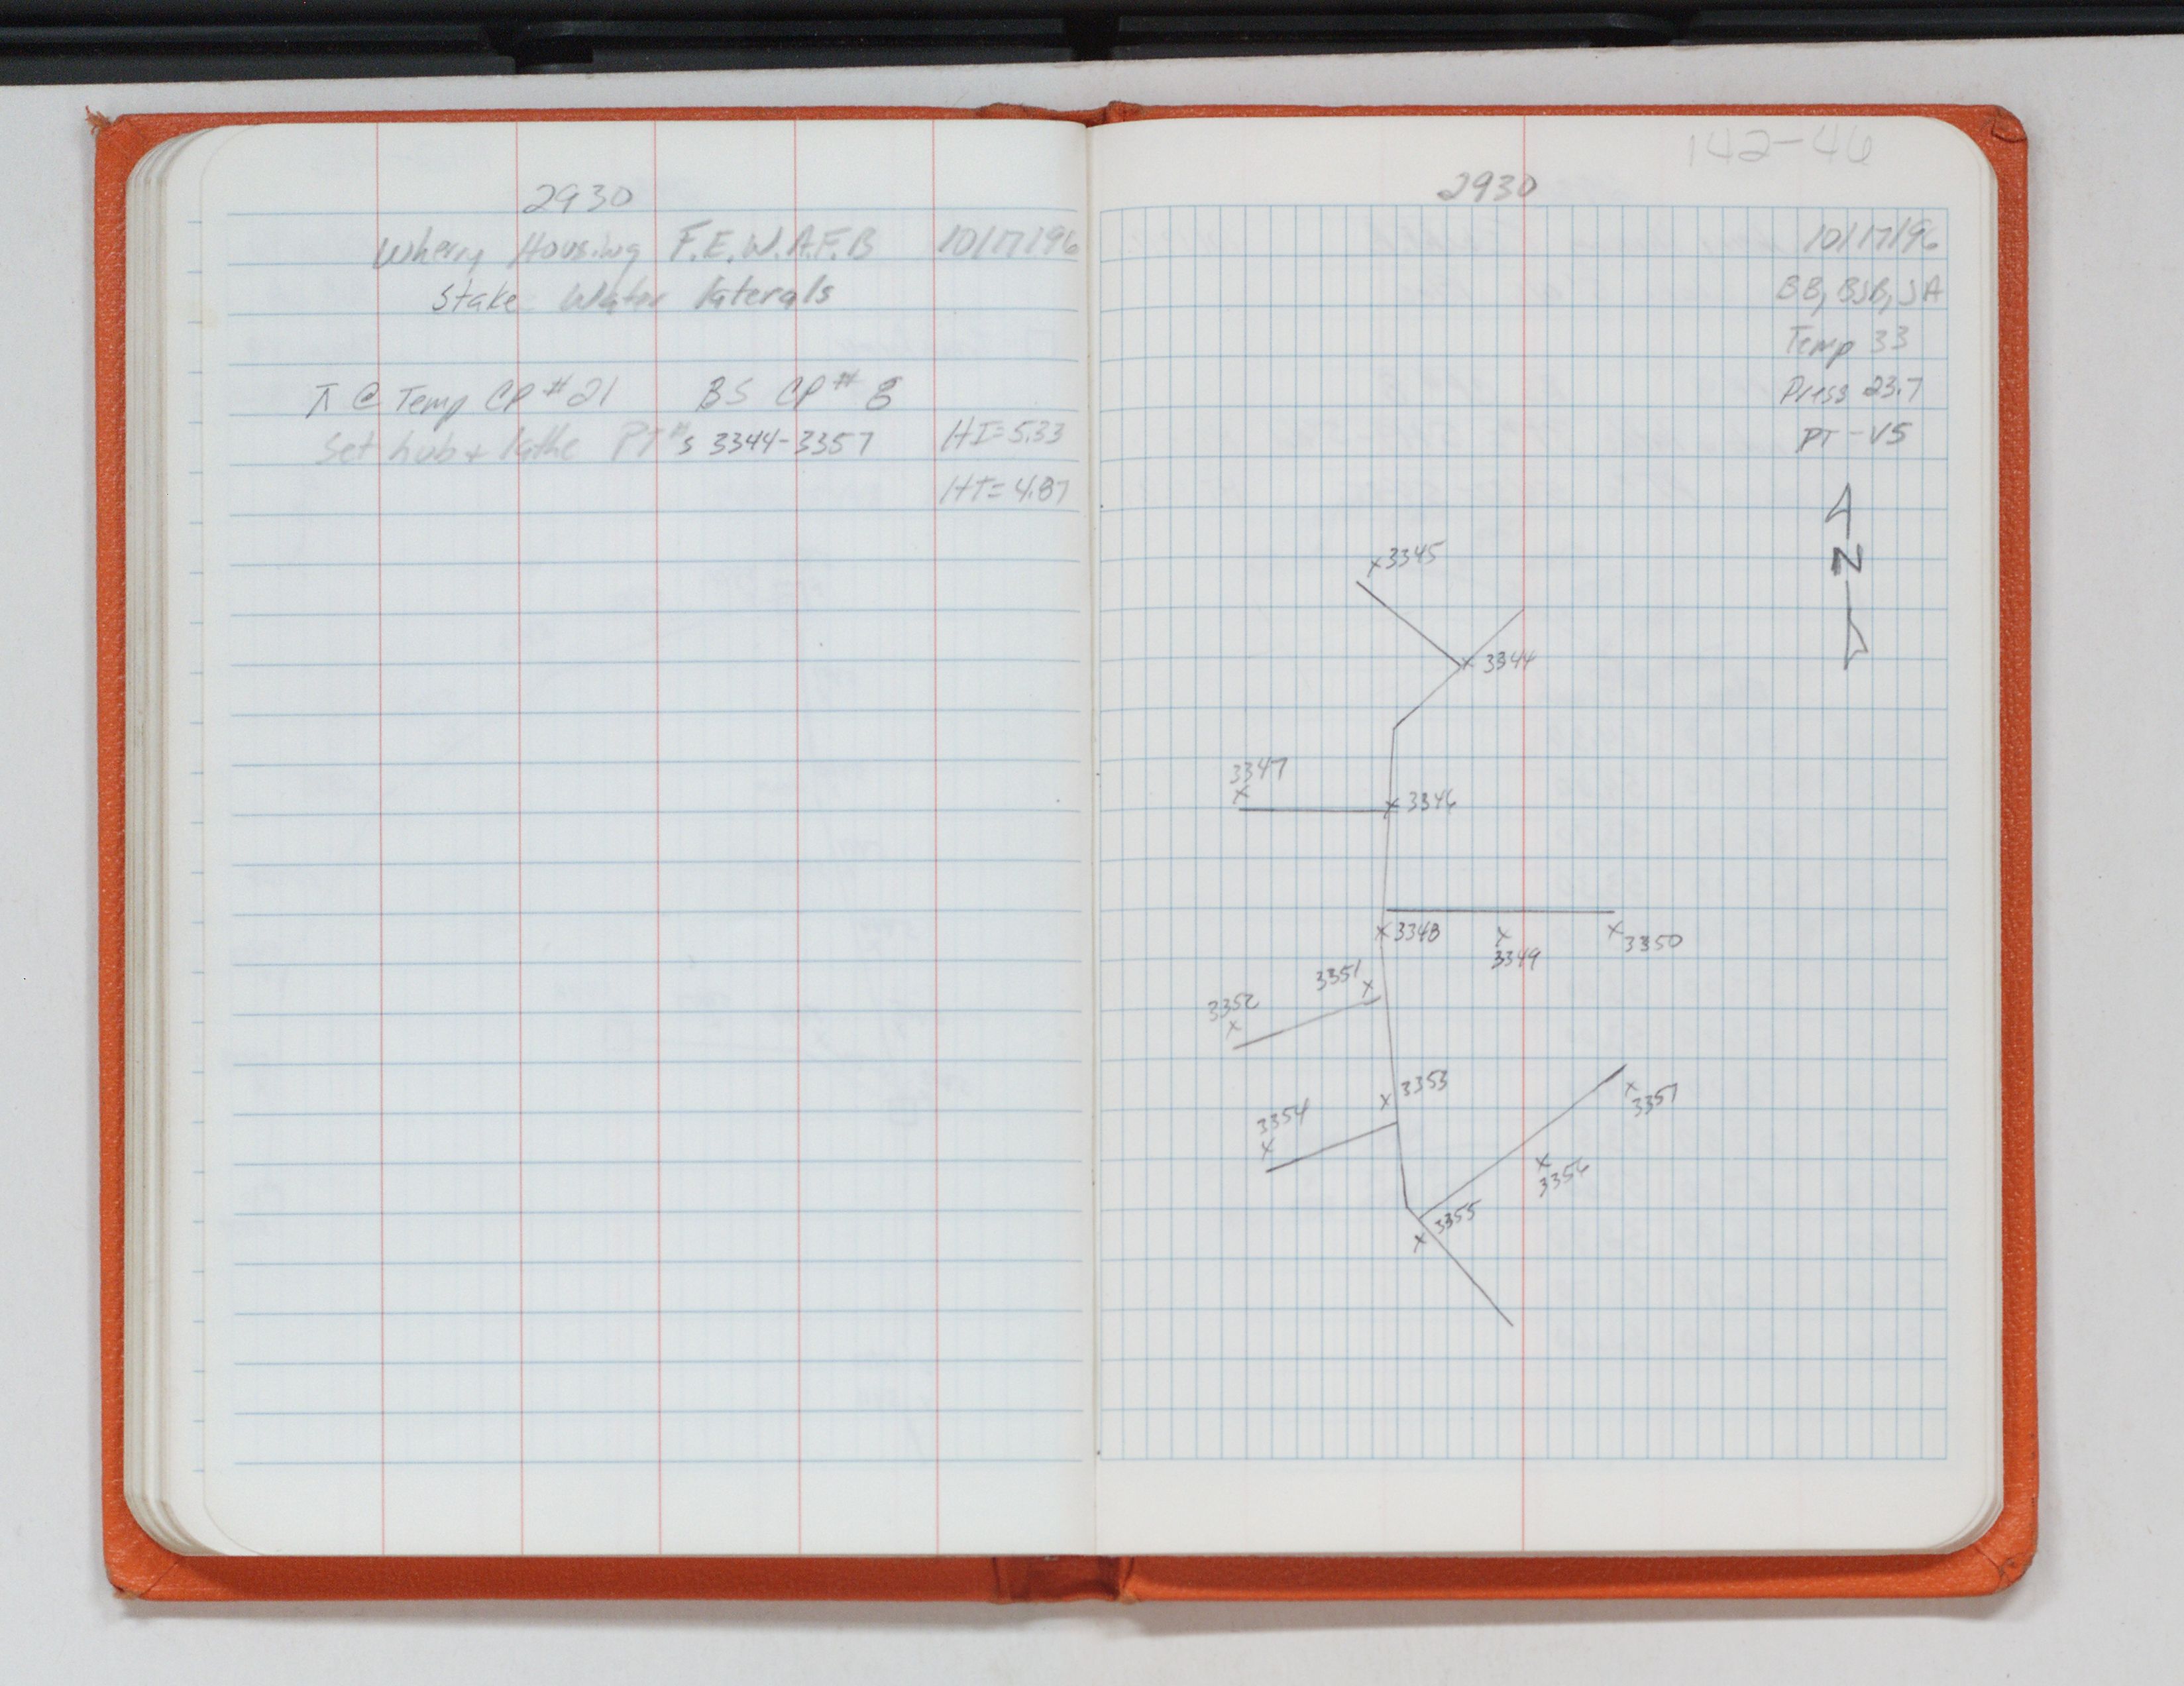 2930
Wherry Housing F.E.W.A.F.B 10/17/96
Stake Water laterals
⊼ @ Temp CP #21 BS CP# 8
Set hub + lathe PT#s 3344-3357 HI=5.33
HT=4.87
142-46
2930
10/17/96
BB, BJB, JA
Temp 33
Press 23.7
PT-V5
N
3345
3344
3347
3346
3348
3349
3350
3351
3352
3353
3354
3357
3356
3355